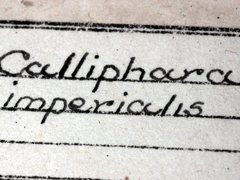 Calliphara
imperialis